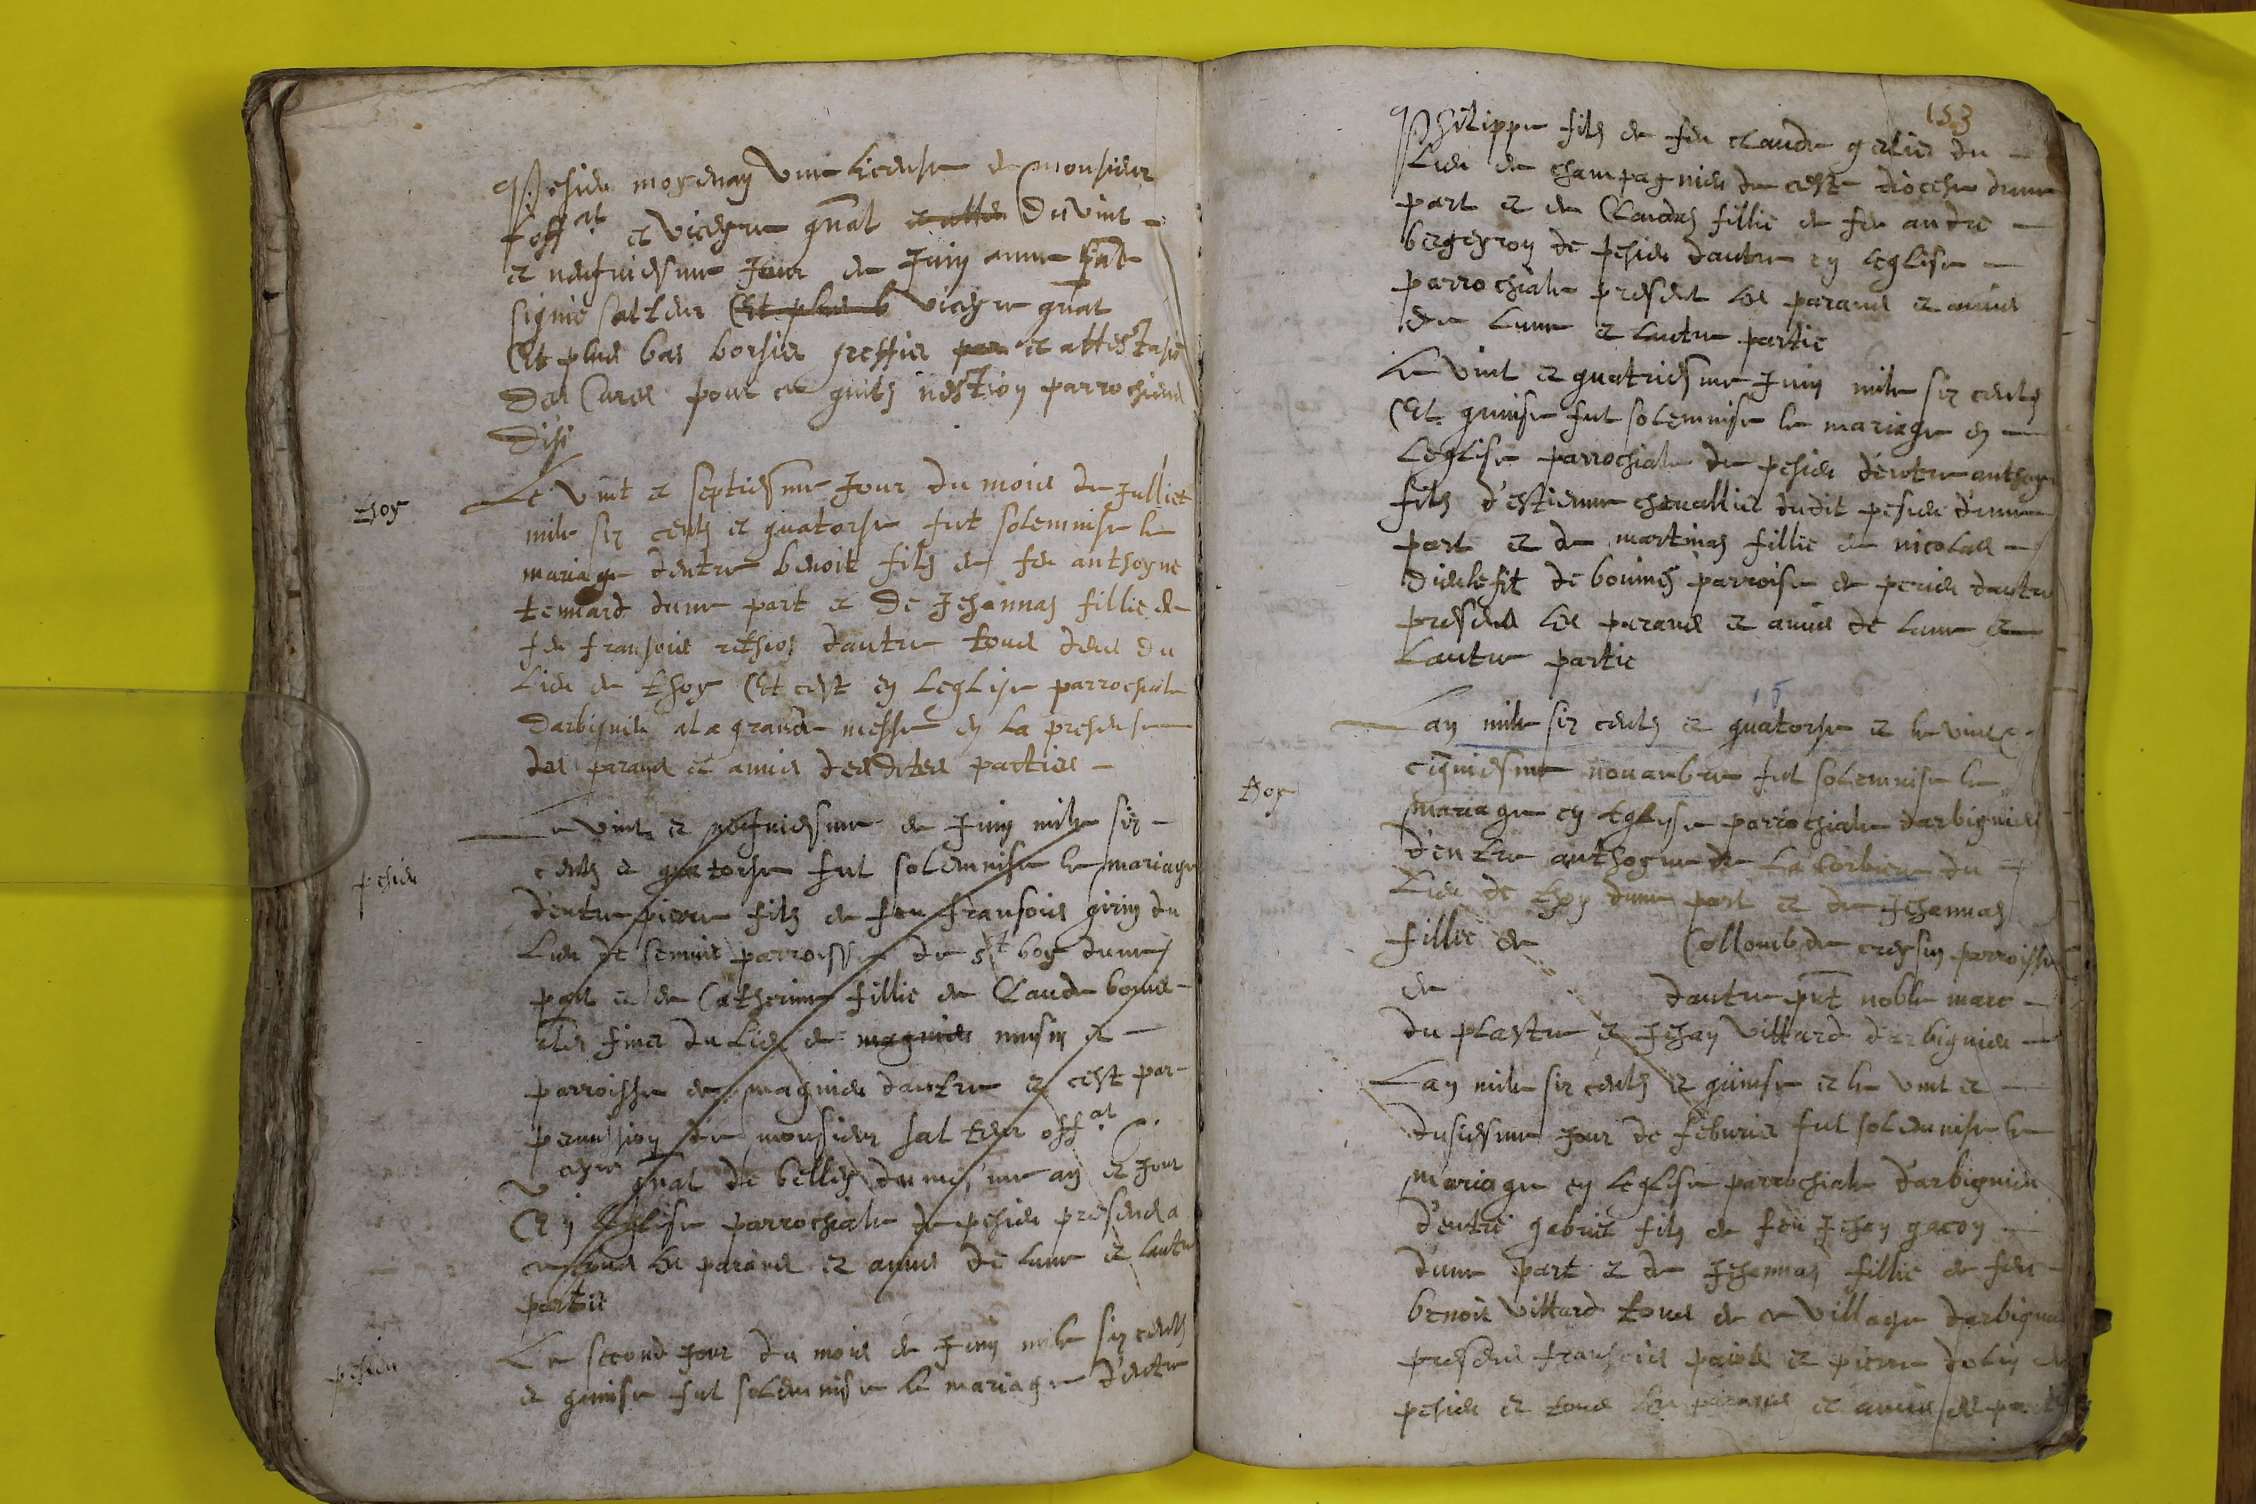 Pesieu moyenan une license de monsieur
l'off.al et vicayre gnal et attes du vint
et neufviesme Jour de Juin anne psāt
signé salteur Et plus b vicayre gnal
Et plus bas borsier greffier par et attestasi
des Cures pour ce quilz nestion parrochiens
disi
Thoy
Le vint et septiesme Jour du mois de Julliet
mile six centz et quatorse fut solemnise le
mariage dentre benoit filz de feu anthoyne
temiard dune part et de Jehannaz fillie de
feu fransois dautre tous deus du
Lieu de thoy Et cest en leglise parrochiale
darbignieu a la grande messe en la presense
des parans et amis desdites parties
Le vint et neufviesme de Juin mile six
pesieu
centz et quatorse fut solemnise le mariage
d'entre pierre filz de feu fransois girin du
Lieu de parroisse de st boy dune
part et de Catherine fillie de Claude
du Lieu de magnieu musin et
parroisse de magnieu dautre et cest par
permission de monsieur salteur off.al
vicayre gnal de belley du mesme an et Jour
Et en leglise parrochiale de pesieu presens a
ce tous les parans et amis de lune et lautre
partie
pesieu
Le second Jour du mois de Juin mile six centz
et quinse fut solemnise le mariage d'entre
153
Philippe filz de feu claude du
Lieu de champagnieu de ceste diocese dune
part et de Claudaz fillie de feu andre
bergeyron de pesieu dautre en leglise
parrochiale presens les parans et amis
de lune et lautre partie
Le vint et quatriesme Juin mile six centz
Et quinse fut solemnise le mariage en
Leglise parrochiale de pesieu d'entre anthoyne
filz d'estienne chevallier dudit pesieu d'une
part et de martinaz fillie de nicolas
dieulefit de parroise de perieu dautre
presens les parans et amis de lune et
Lautre partie
15
Lan mile six centz et quatorse et le vint
Thoy
cinquiesme novambre fut solemnise le
mariage en leglise parrochiale darbignieu
d'entre anthoyne de La du
Lieu de thoy dune part et de Jehannaz
fillie de Collomb de creyssin parroisse
de dautre pnt noble marc
du plastre et Jehan Vittard d'arbignieu
Lan mile six centz et quinse et le vint et
dusiesme Jour de feburier fut solemnise le
mariage en leglise parrochiale d'arbignieu
d'entre gabriel filz de feu Jehan gacon
d'une part et de Jehannaz fillie de feu
benoit Vittard tous de ce village d'arbignieu
presens fransois et pierre de
pesieu et tous les parans et amis des parties